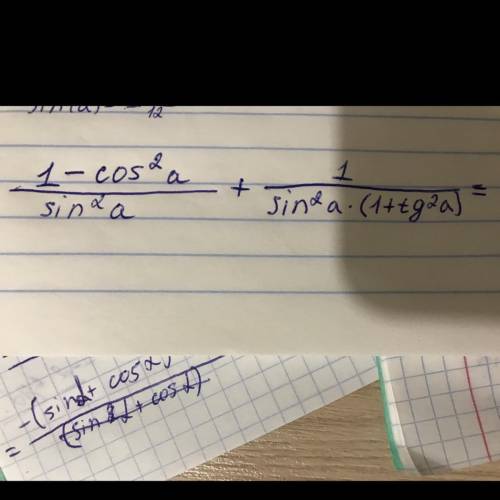 sin(a) = - /12
1 - cos²a / sin²a + 1 / sin²a · (1 + tg²a) =
= -(sinα + cosα) / (sinα + cosα)